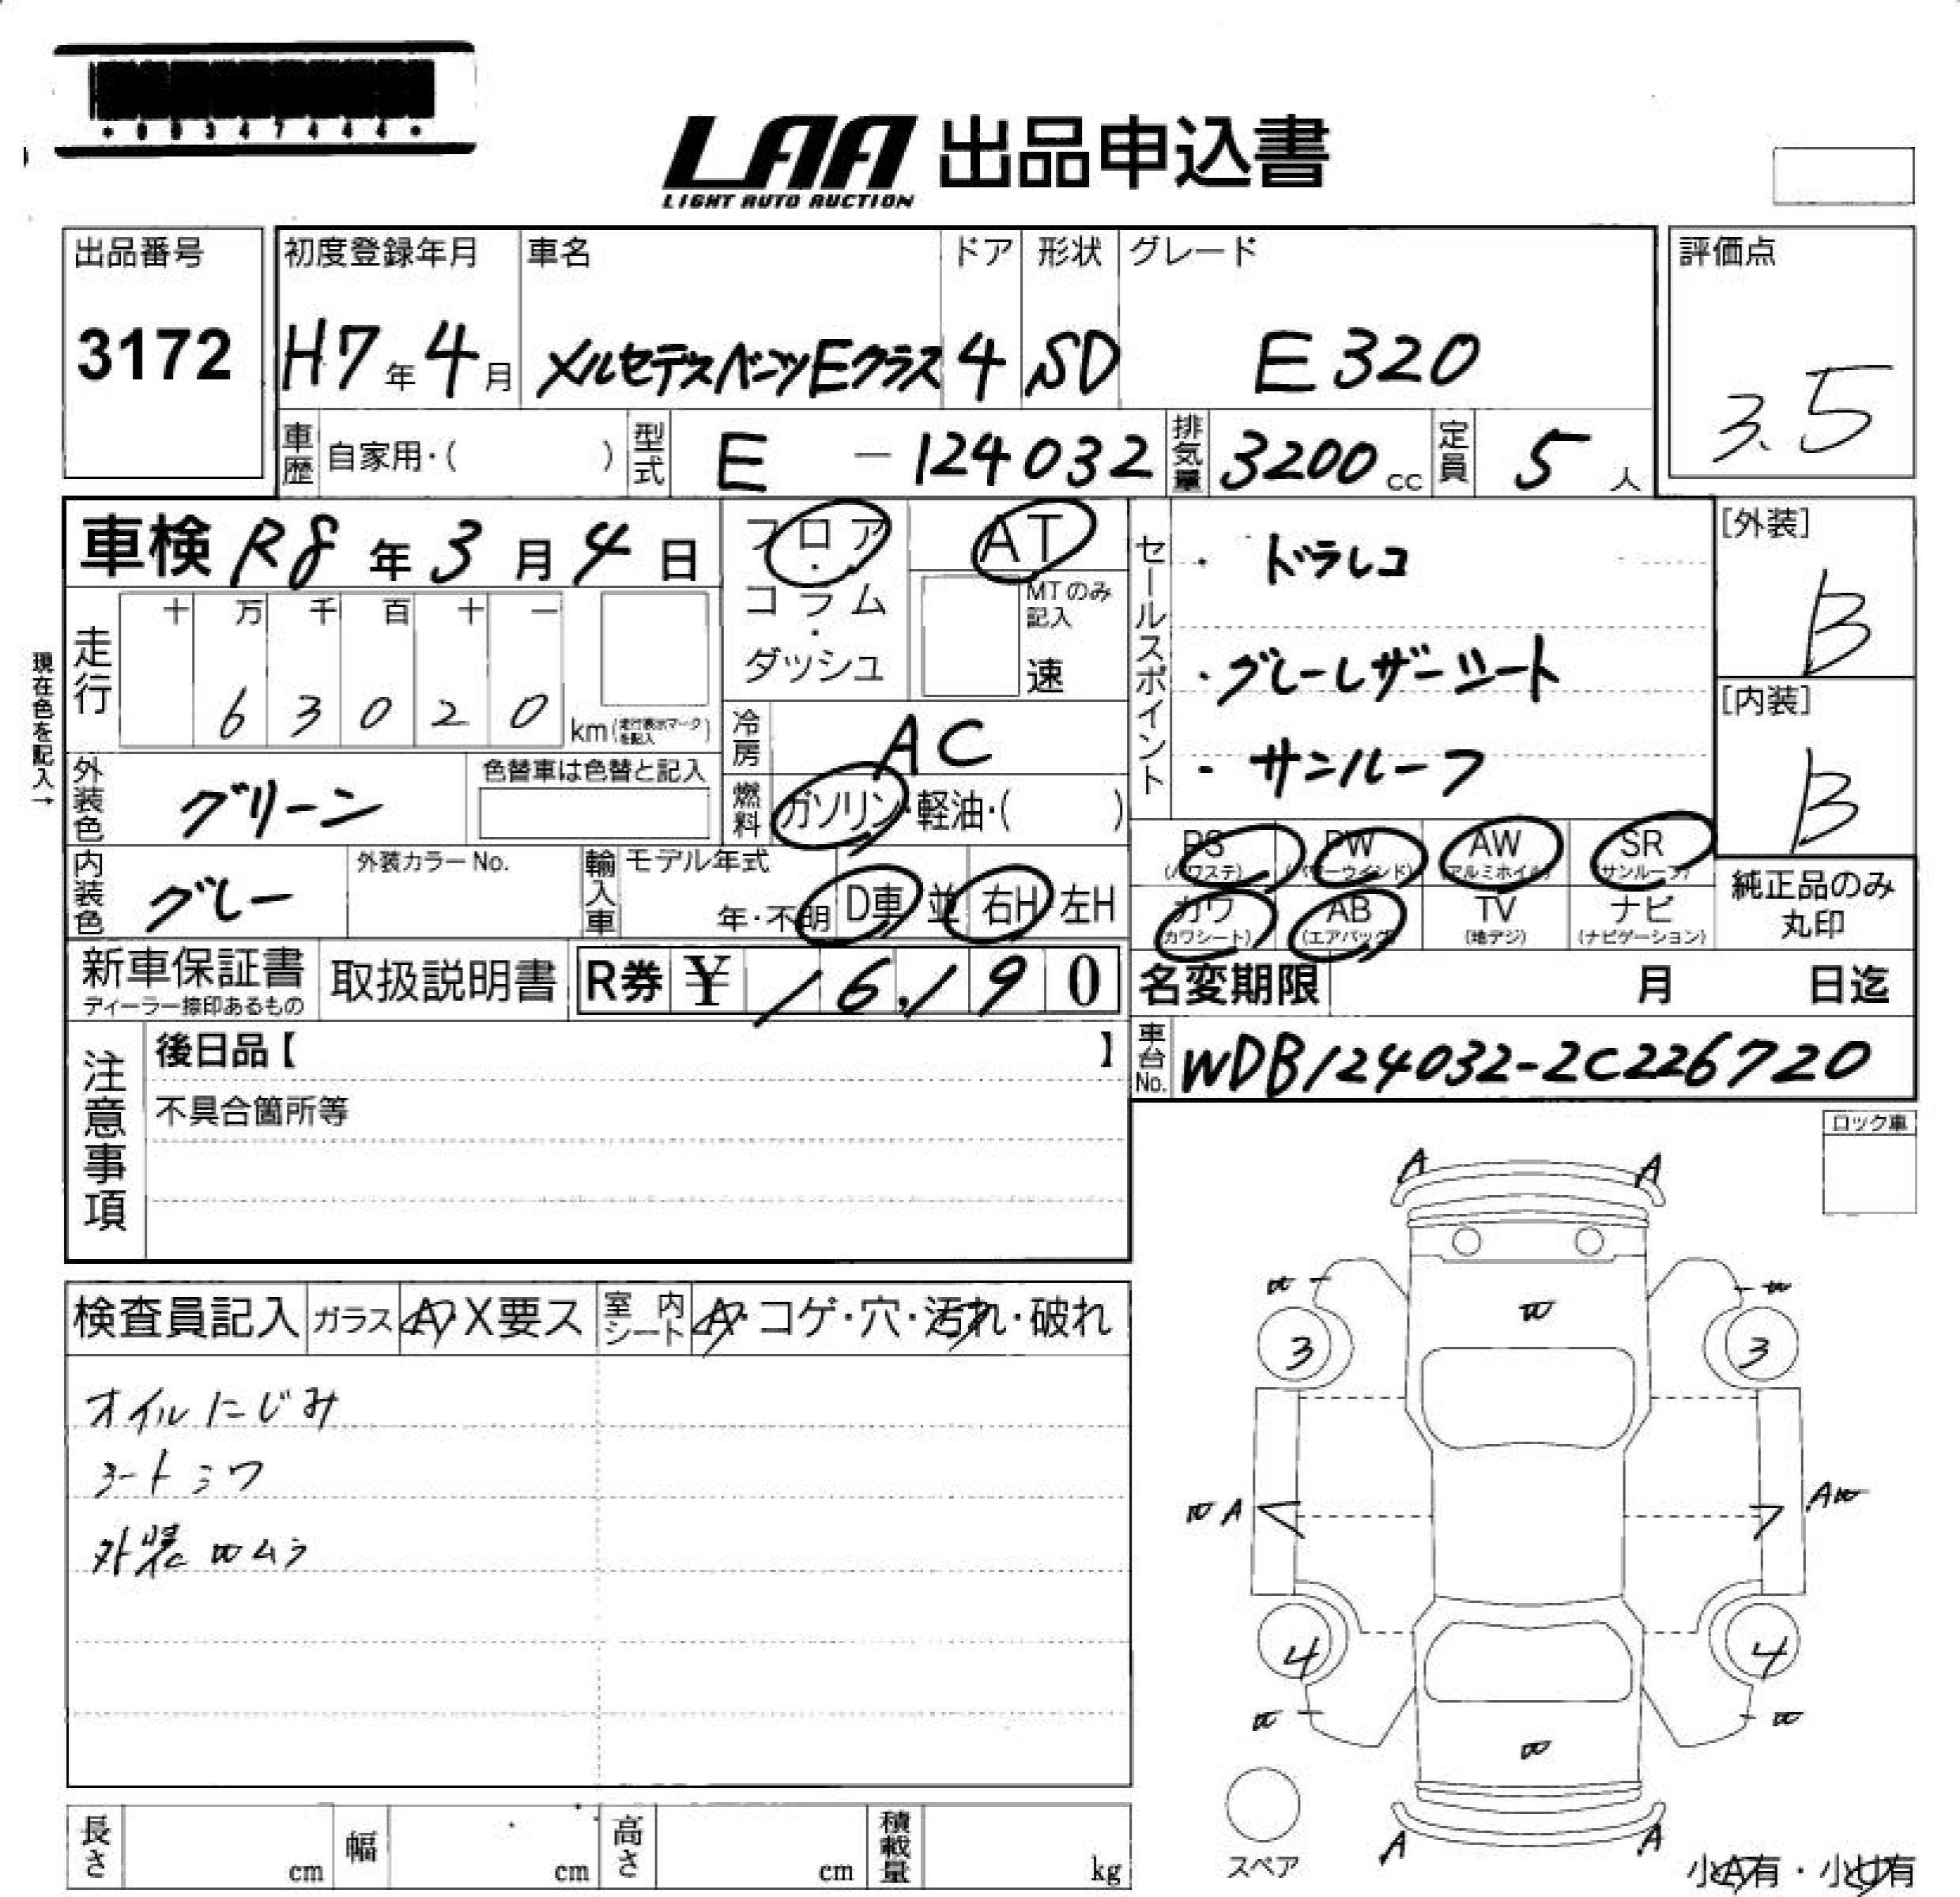 *00347444*
LAA 出品申込書
LIGHT AUTO AUCTION
出品番号 3172
初度登録年月 H7年4月
車名 メルセデスベンツEクラス
ドア 4
形状 SD
グレード E320
評価点 3.5
車歴 自家用・( )
型式 E-124032
排気量 3200cc
定員 5人
車検 R8年3月4日
フロア・コラム・ダッシュ
AT
MTのみ記入 速
セールスポイント
・ドラレコ
・グレーレザーシート
・サンルーフ
[外装] B
[内装] B
現在色を記入→
走行 十万千百十一
63020 km(走行表示マークを記入)
冷房 AC
外装色 グリーン
色替車は色替と記入
燃料 ガソリン・軽油・( )
PS(パワステ) PW(パワーウインド) AW(アルミホイル) SR(サンルーフ)
カワ(カワシート) AB(エアバック) TV(地デジ) ナビ(ナビゲーション)
純正品のみ丸印
内装色 グレー
外装カラーNo.
輸入車 モデル年式 年・不明 D車 並 右H 左H
新車保証書 ディーラー捺印あるもの
取扱説明書
R券 ¥16,190
名変期限 月 日迄
車台No. WDB124032-2C226720
注意事項
後日品【 】
不具合箇所等
ロック車
検査員記入 ガラス A・X要ス 室内シート A・コゲ・穴・汚れ・破れ
オイルにじみ
シートシワ
外装Wムラ
A A
W W W
3 3
W A AW
4 4
W W W
A A
スペア
小A有・小U有
長さ cm 幅 cm 高さ cm 積載量 kg